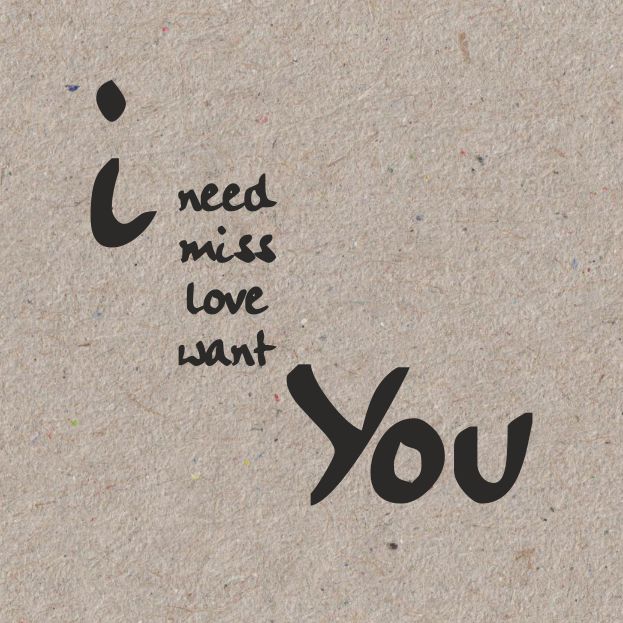 i
need
miss
love
want
You